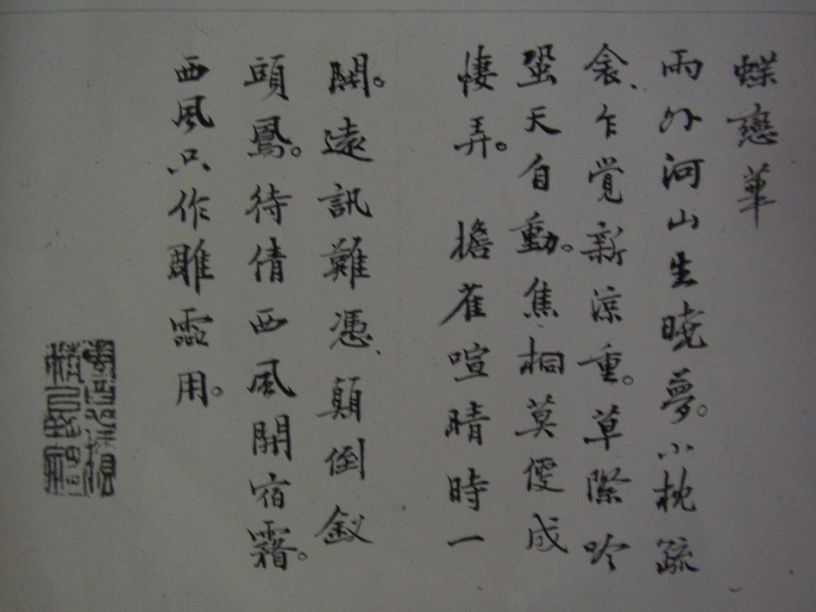 蝶戀華
雨外河山生曉夢。小枕疏
衾、乍覺新涼重。草際吟
蛩天自動。焦桐莫便成
悽弄。　檐雀喧晴時一
鬨。遠訊難憑、顛倒釵
頭鳳。待倩西風開宿
西風只作雕霝用。